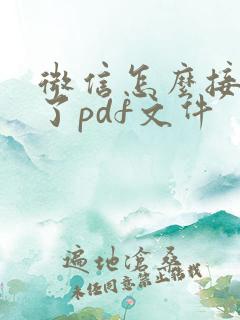 微信怎麼接
了pdf文件
遍地滄桑
未经同意禁止搬我